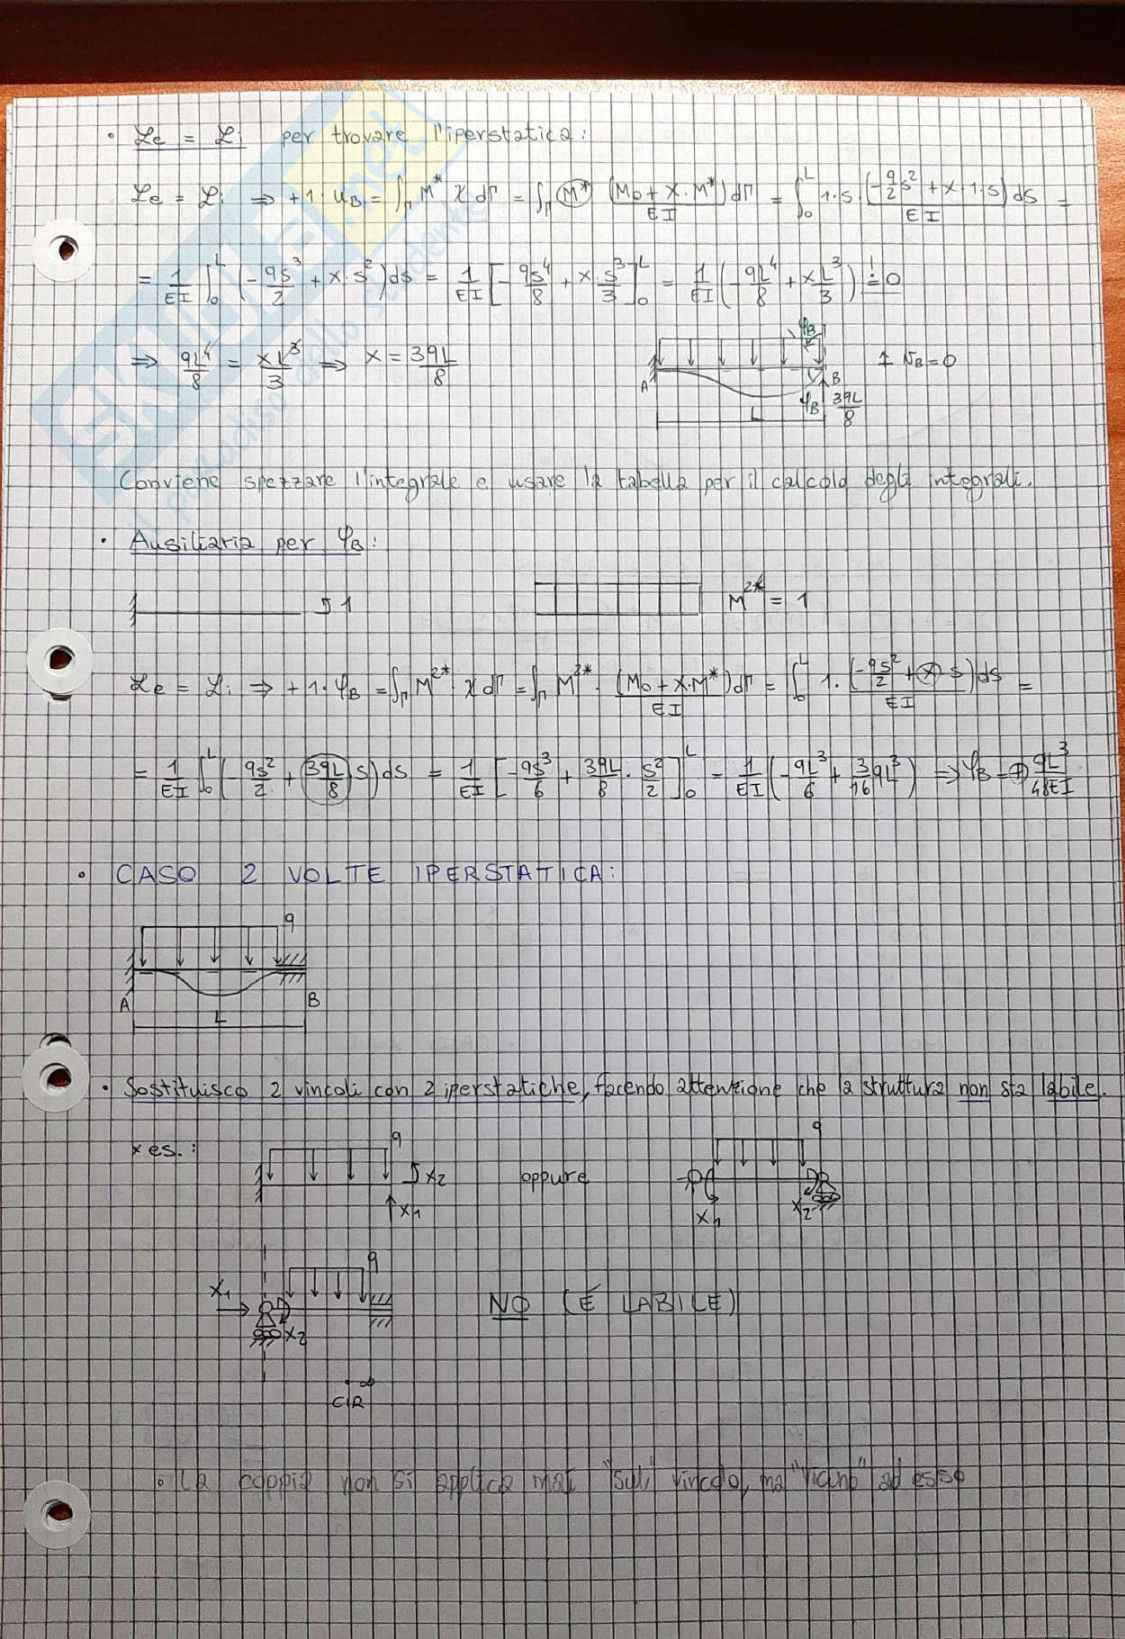 • Le = Li per trovare l'iperstatica:
Le = Li ⇒ +1·uB = ∫Γ M* χ dΓ = ∫Γ M* (M0 + X·M*)/EI dΓ = ∫₀ᴸ 1·s·(-q/2 s² + x·1·s)/EI ds =
= 1/EI ∫₀ᴸ (-qs³/2 + x·s²) ds = 1/EI [-qs⁴/8 + x s³/3]₀ᴸ = 1/EI (-qL⁴/8 + xL³/3) != 0
⇒ qL⁴/8 = xL³/3 ⇒ x = 3qL/8
φB
A
B
φB
3qL/8
L
vB = 0
Conviene spezzare l'integrale e usare la tabella per il calcolo degli integrali.
• Ausiliaria per φB:
1
M²* = 1
Le = Li ⇒ +1·φB = ∫Γ M²* χ dΓ = ∫Γ M²* · (M0 + X·M*)/EI dΓ = ∫₀ᴸ 1·(-qs²/2 + x·s)/EI ds =
= 1/EI ∫₀ᴸ (-qs²/2 + 3qL/8 s) ds = 1/EI [-qs³/6 + 3qL/8 · s²/2]₀ᴸ = 1/EI (-qL³/6 + 3/16 qL³) ⇒ φB = + qL³/48EI
• CASO 2 VOLTE IPERSTATICA:
q
A
B
L
• Sostituisco 2 vincoli con 2 iperstatiche, facendo attenzione che la struttura non sia labile.
x es.:
q
x2
x1
oppure
q
x1
x2
q
x1
x2
NO (É LABILE)
∞
CIR
• La coppia non si applica mai "sul" vincolo, ma "vicino" ad esso